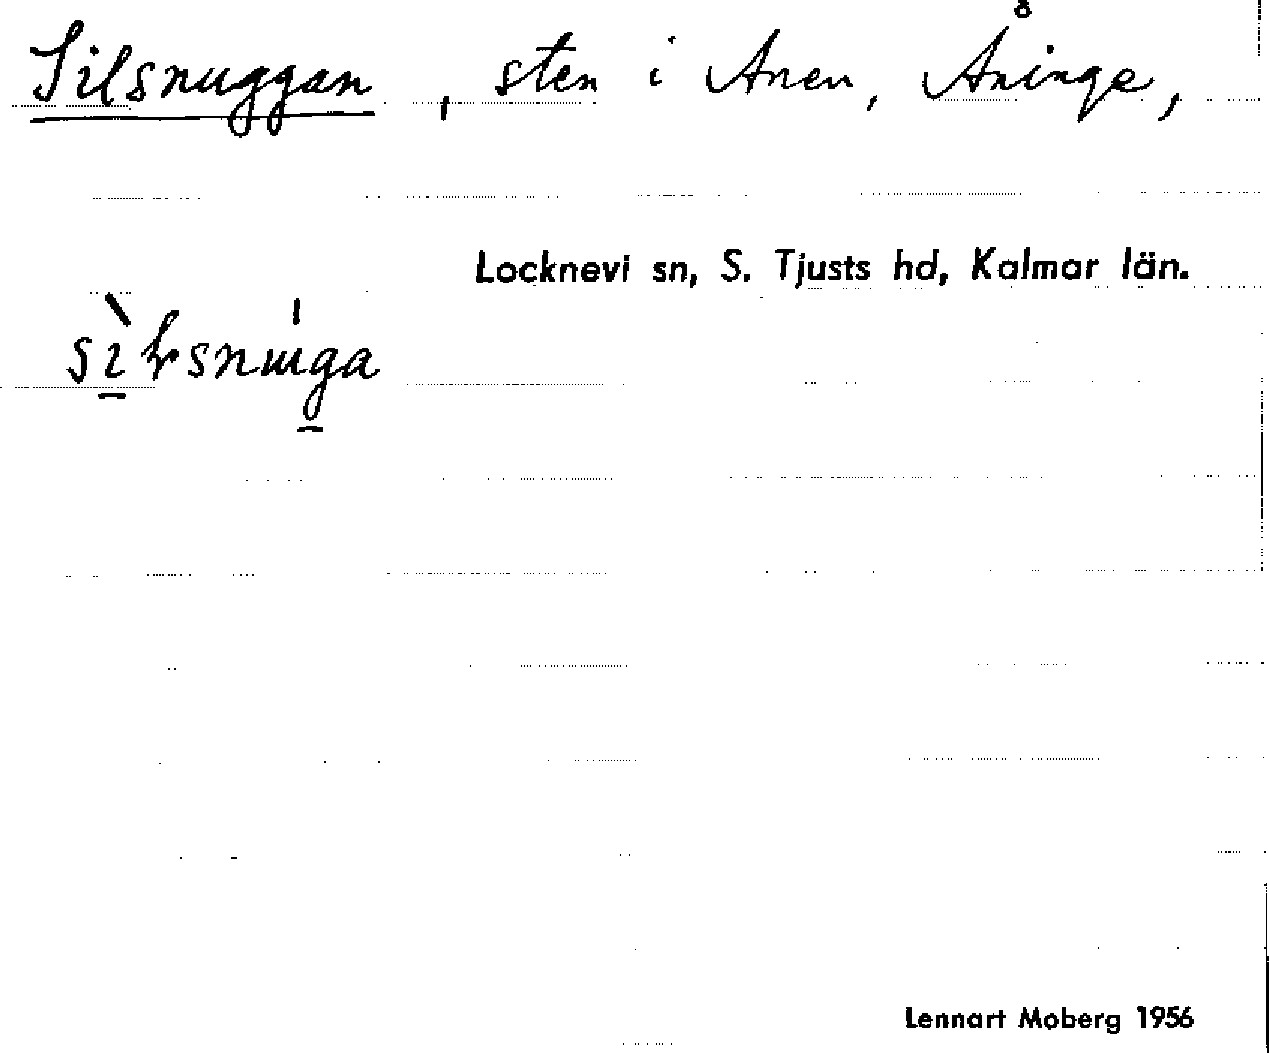 Silsnuggan, sten i Anen, Åninge,
Locknevi sn, S. Tjusts hd, Kalmar län.
Lennart Moberg 1956